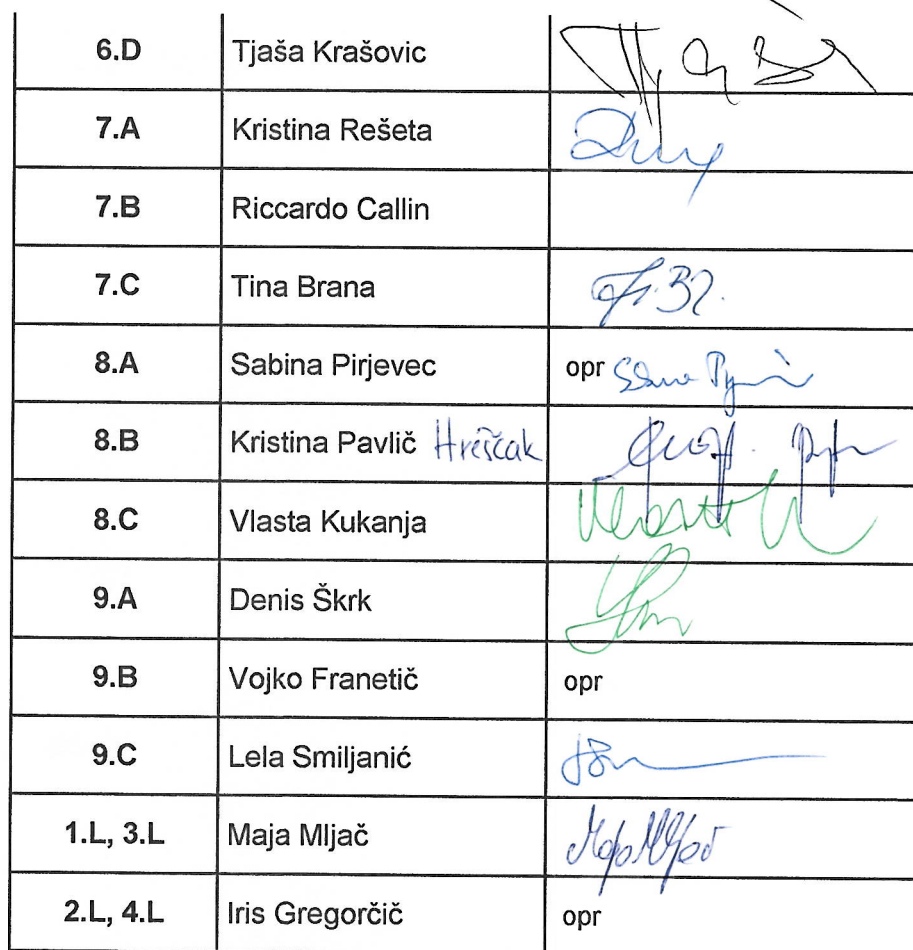 6.D Tjaša Krašovic
7.A Kristina Rešeta
7.B Riccardo Callin
7.C Tina Brana
8.A Sabina Pirjevec opr
8.B Kristina Pavlič Hreščak
8.C Vlasta Kukanja
9.A Denis Škrk
9.B Vojko Franetič opr
9.C Lela Smiljanić
1.L, 3.L Maja Mljač
2.L, 4.L Iris Gregorčič opr